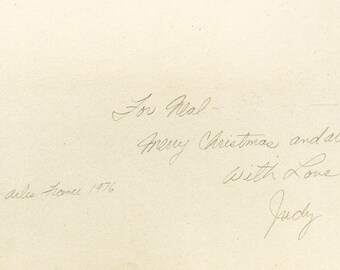 For Neal -
Merry Christmas and
With Love
Judy
Arles France 1976